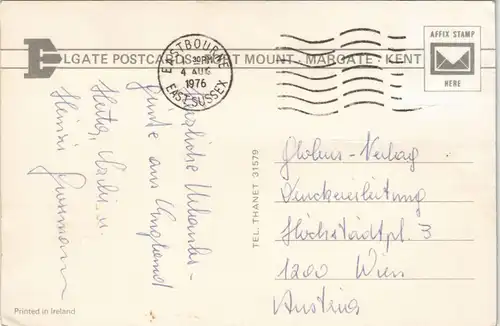 ELGATE POSTCARDS
MOUNT · MARGATE · KENT
EASTBOURNE
4 AUG
1976
EAST SUSSEX
AFFIX STAMP
HERE
Herzliche Urlaubs-
grüße aus England
Herta,
TEL. THANET 31579
Globus-Verlag
Druckereileitung
Höchstädtpl. 3
1200 Wien
Austria
Printed in Ireland